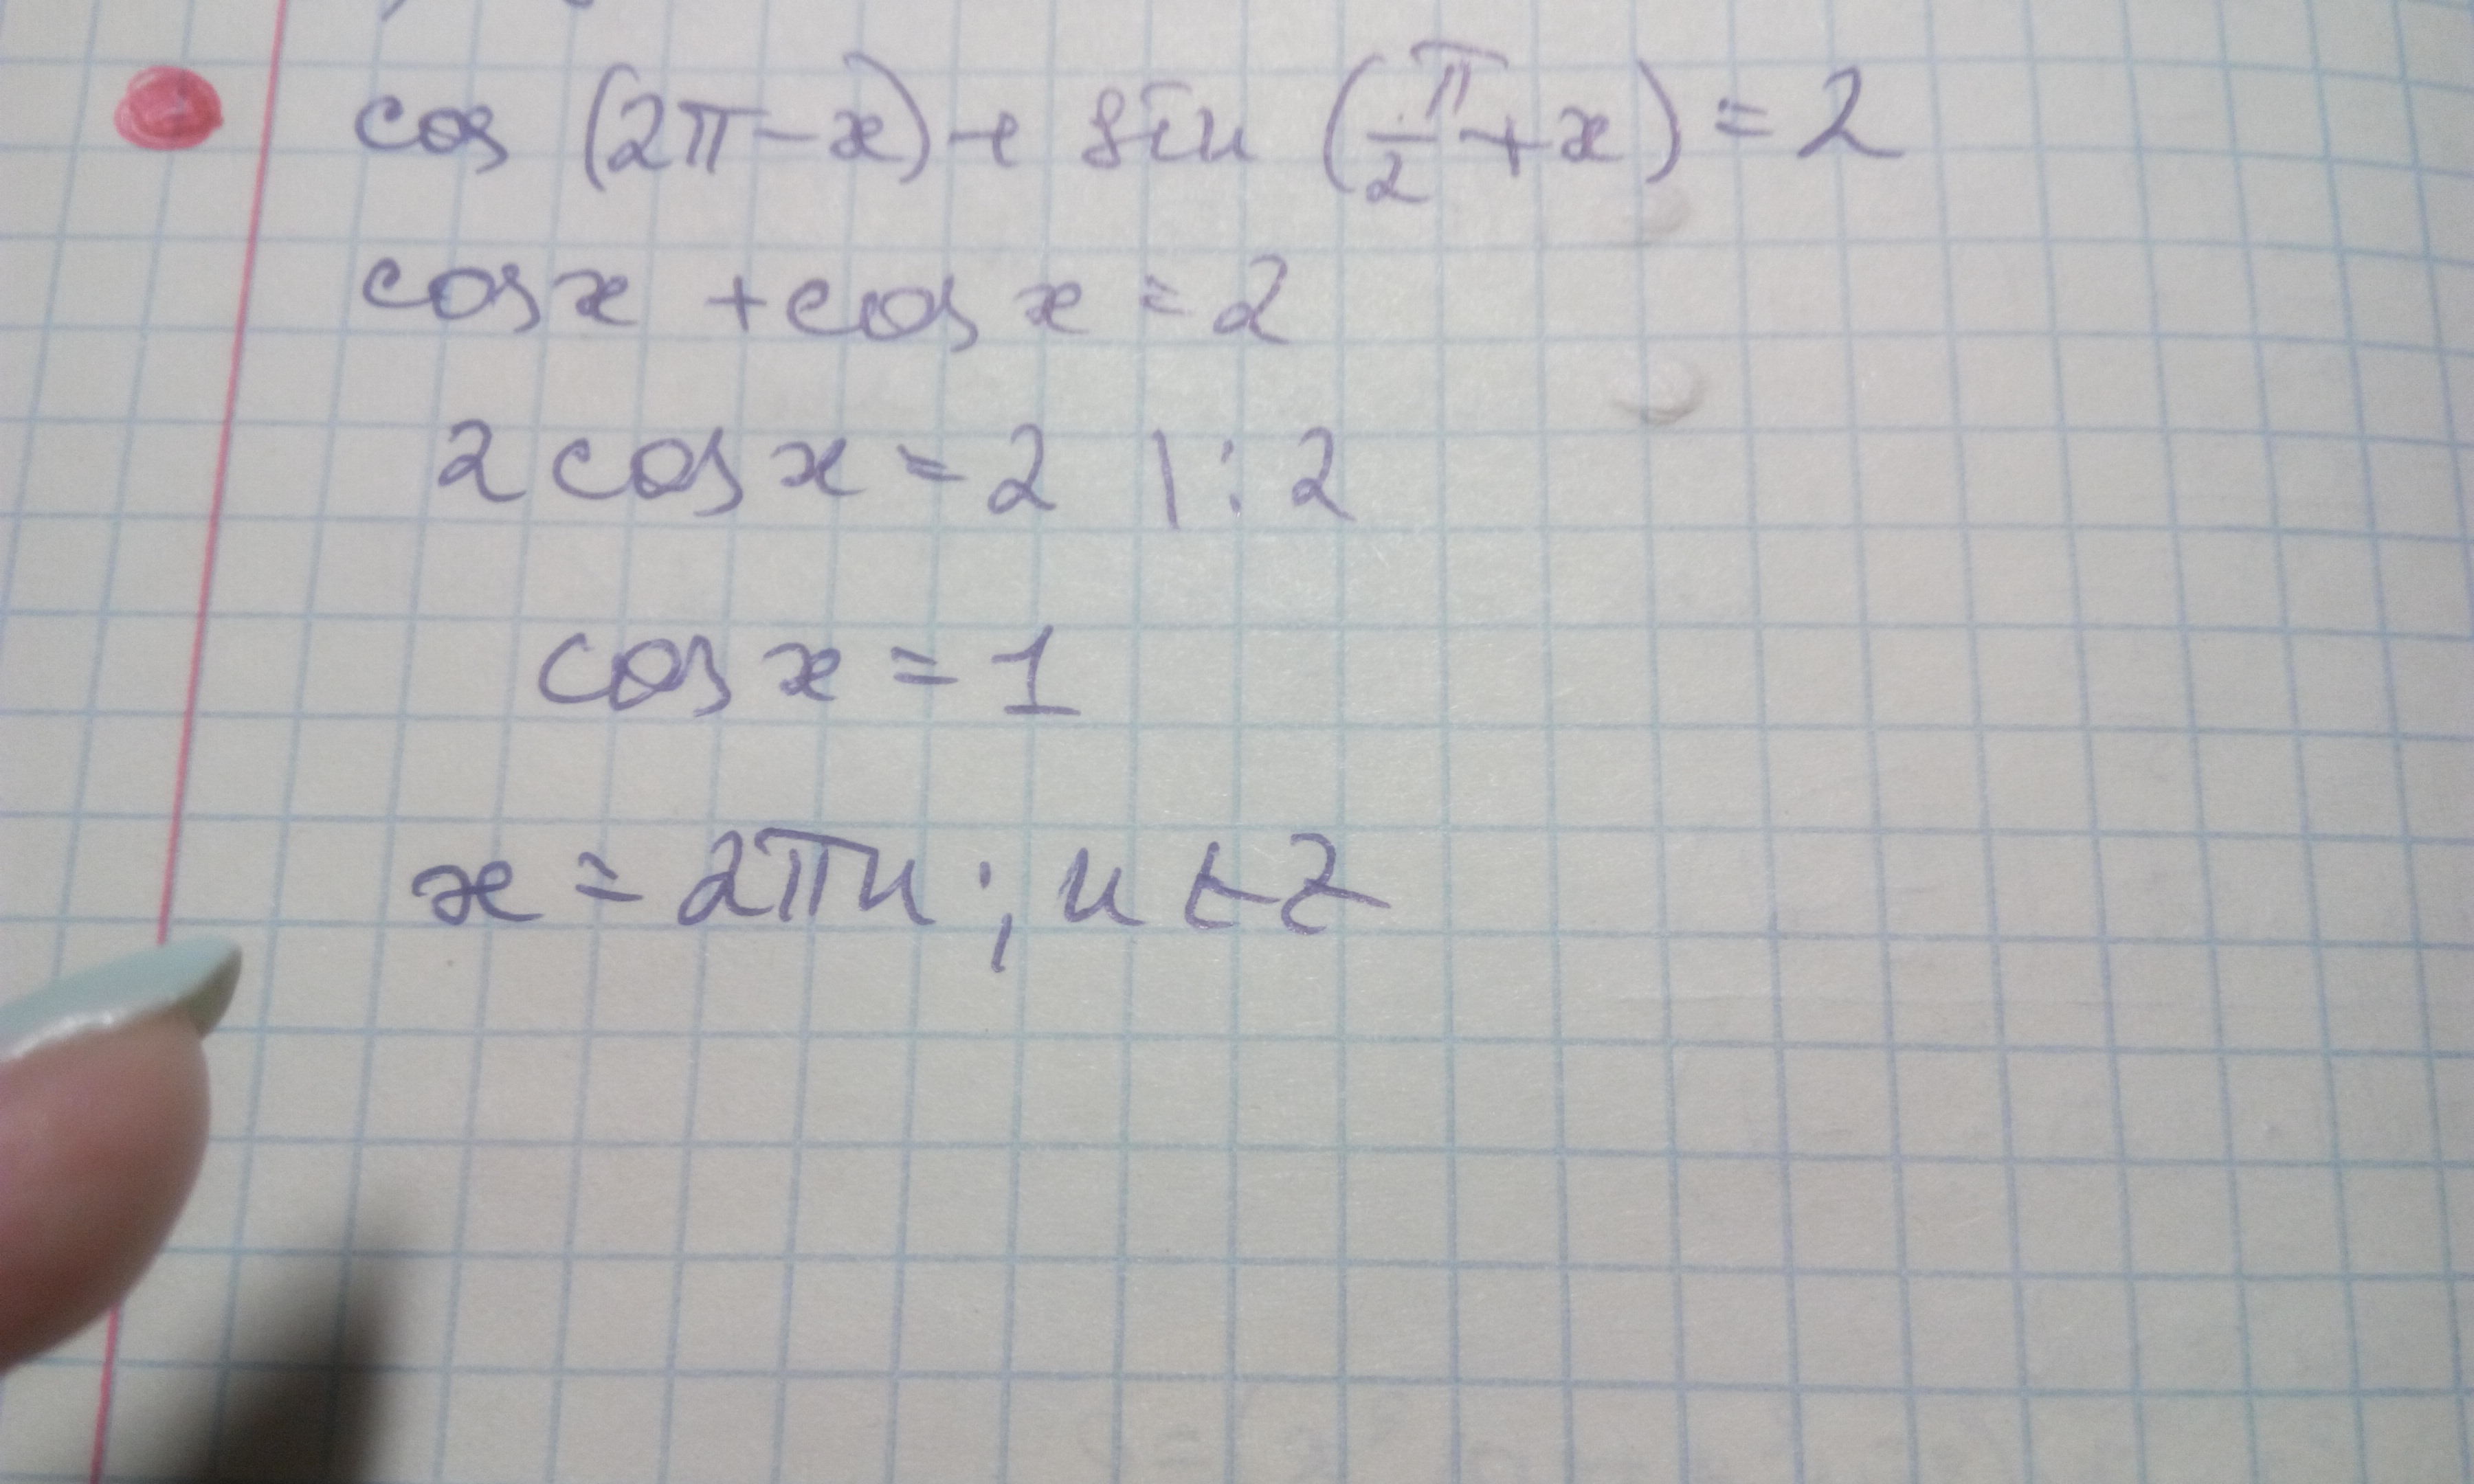 cos (2π - x) + sin (π/2 + x) = 2
cos x + cos x = 2
2 cos x = 2 | : 2
cos x = 1
x = 2πn ; n ∈ Z